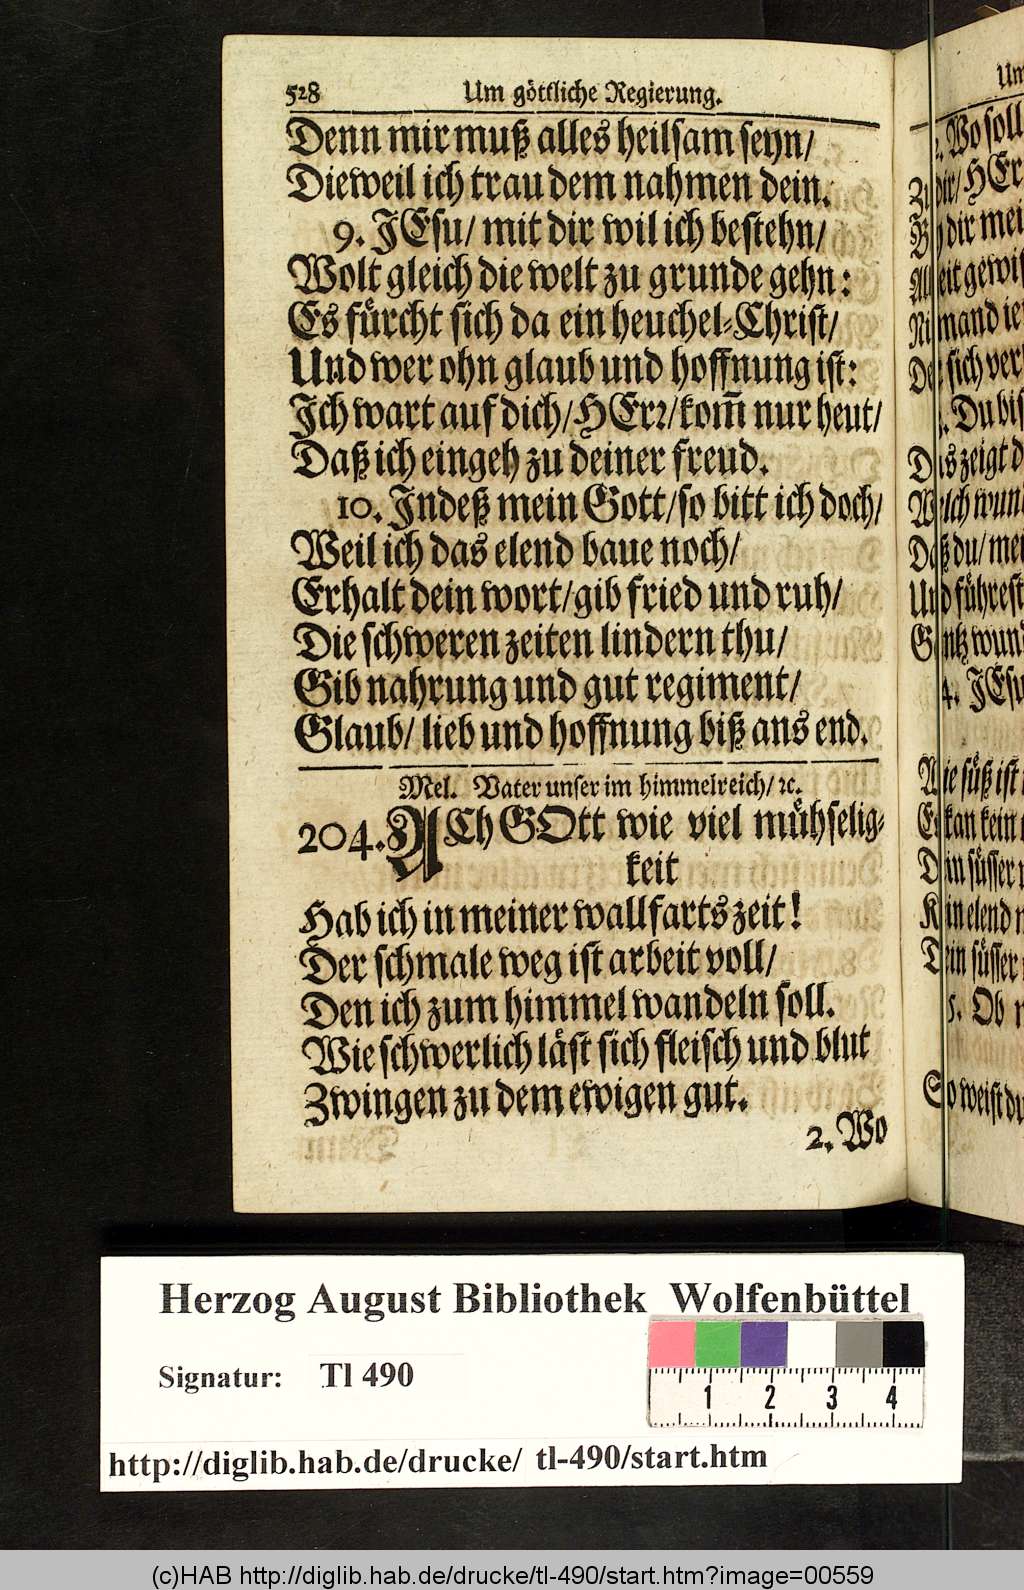 528 Um göttliche Regierung.
Denn mir muß alles heilsam seyn/
Dieweil ich trau dem nahmen dein.
9. JEsu/ mit dir wil ich bestehn/
Wolt gleich die welt zu grunde gehn:
Es fürcht sich da ein heuchel-Christ/
Und wer ohn glaub und hoffnung ist:
Ich wart auf dich/ HErr/ kom̃ nur heut/
Daß ich eingeh zu deiner freud.
10. Indeß mein Gott/ so bitt ich doch/
Weil ich das elend baue noch/
Erhalt dein wort/ gib fried und ruh/
Die schweren zeiten lindern thu/
Gib nahrung und gut regiment/
Glaub/ lieb und hoffnung biß ans end.
Mel. Vater unser im himmelreich/ ꝛc.
204. ACh GOtt wie viel mühselig-
keit
Hab ich in meiner wallfarts zeit!
Der schmale weg ist arbeit voll/
Den ich zum himmel wandeln soll.
Wie schwerlich läst sich fleisch und blut
Zwingen zu dem ewigen gut.
2. Wo
Um
Wo soll
dir/ HEr
dir mei
Du bis
zeigt
du/ mei
führest
4. JEsu
süß ist
kan kein
süsser
elend
süsser
5. Ob
So weist du
Herzog August Bibliothek Wolfenbüttel
Signatur: Tl 490
1 2 3 4
http://diglib.hab.de/drucke/ tl-490/start.htm
(c)HAB http://diglib.hab.de/drucke/tl-490/start.htm?image=00559